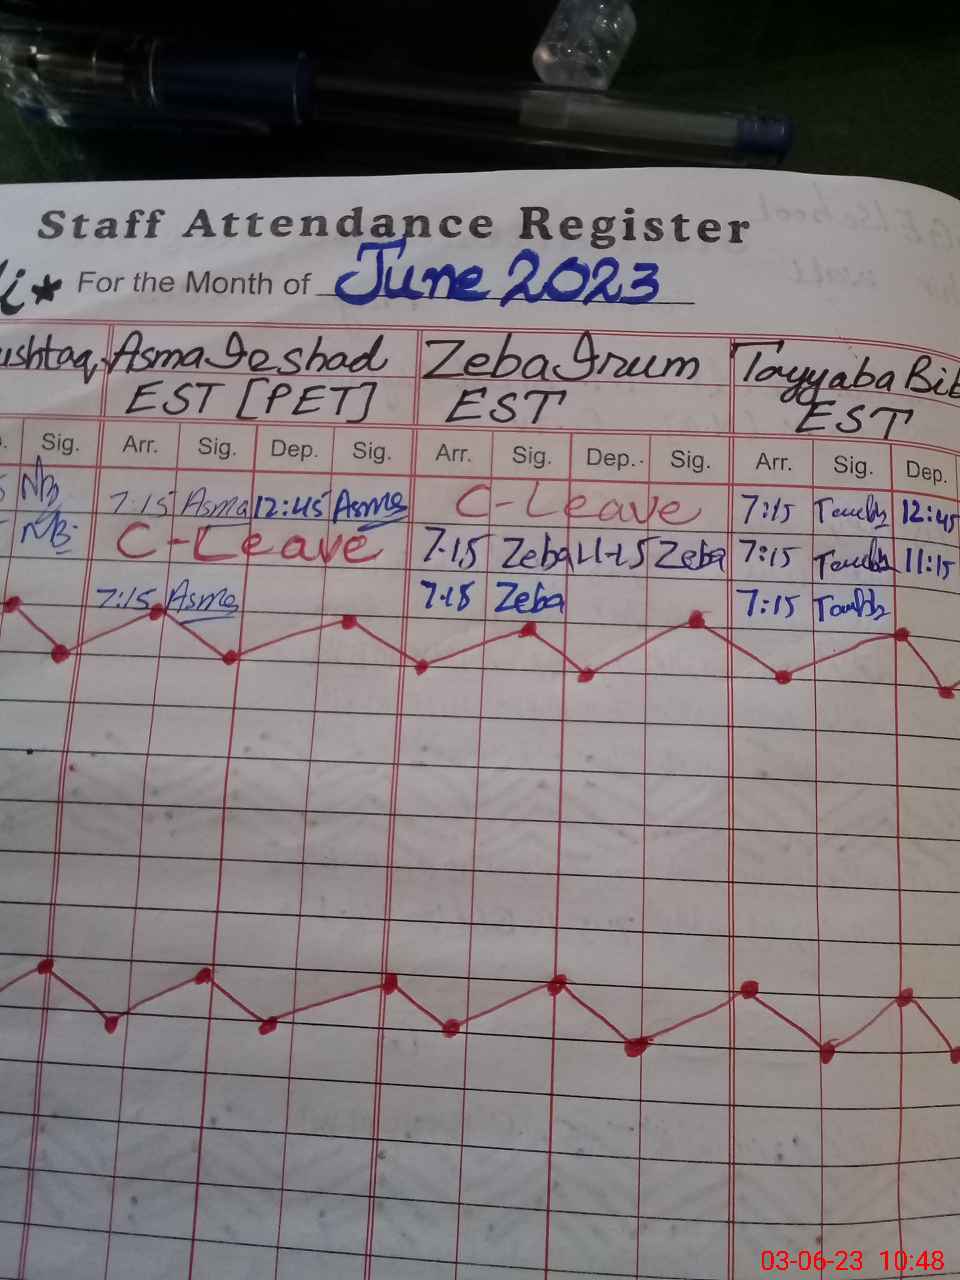 Staff Attendance Register
i* For the Month of June 2023
ushtaq Asma Ieshad Zeba Irum Tayyaba Bib
EST [PET] EST EST
. Sig. Arr. Sig. Dep. Sig. Arr. Sig. Dep. Sig. Arr. Sig. Dep.
5 NB 7:15 Asma 12:45 Asma C-Leave 7:15 12:45
NB C-Leave 7.15 Zeba 11-15 Zeba 7:15 11:15
7:15 Asma 7.15 Zeba 7:15
03-06-23 10:48